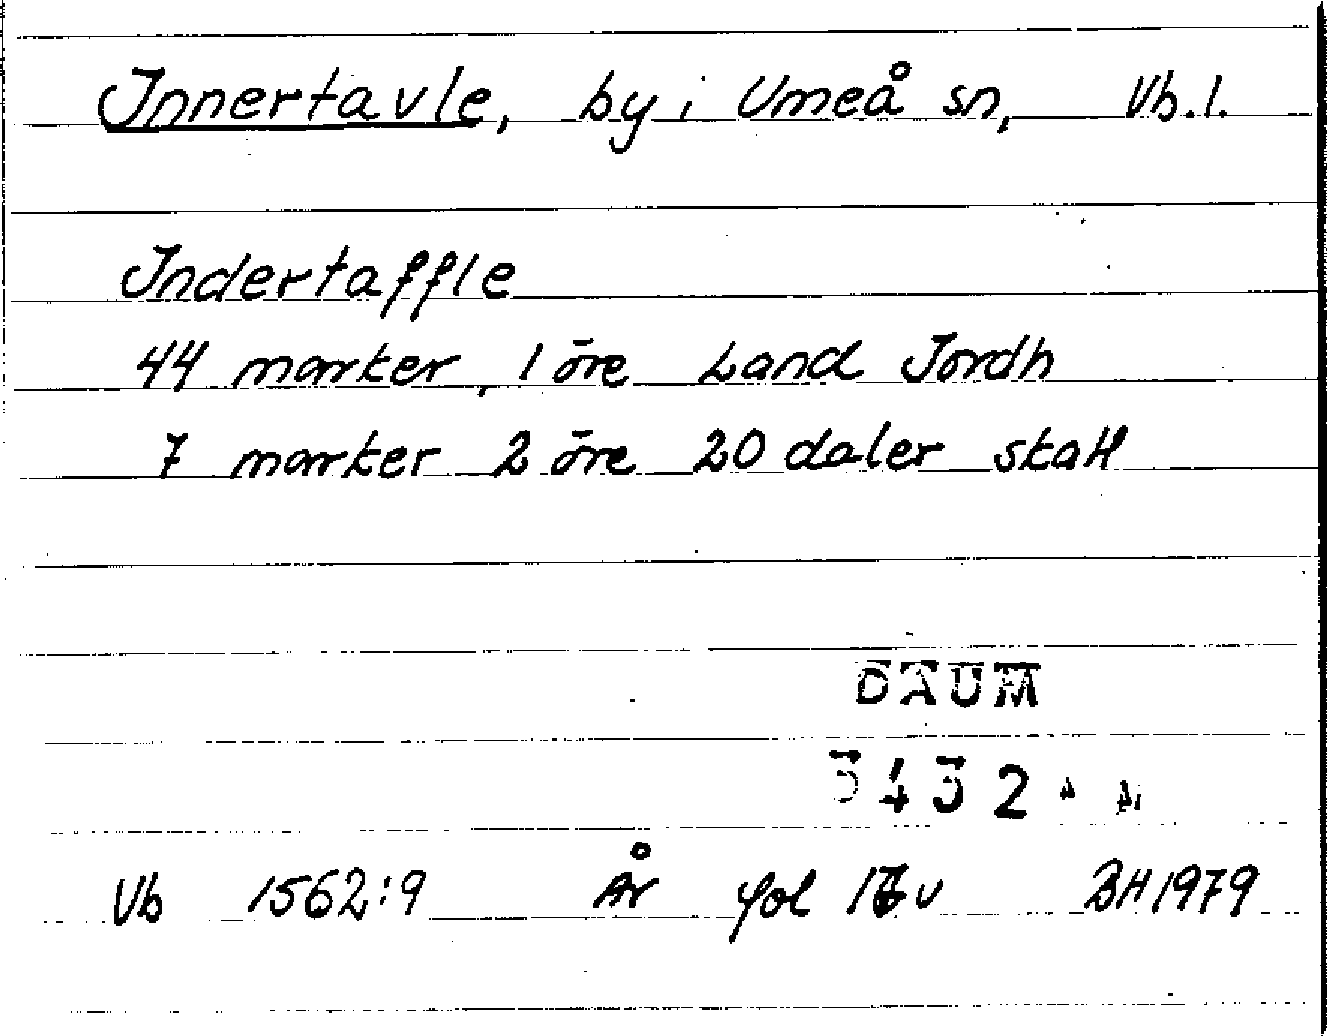 Innertavle, by i Umeå sn, Vb.l.
Indertaffle
44 marker, 1 öre Land Jordh
7 marker 2 öre 20 daler skatt
DAUM
3432
Vb 1562:9 År fol v BH 1979